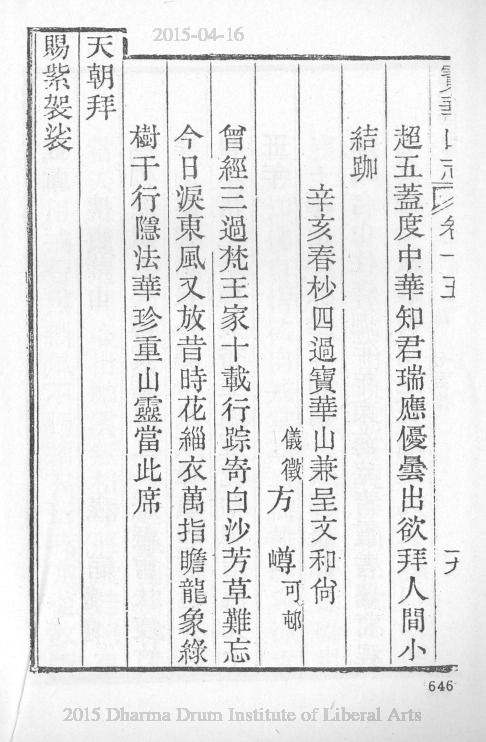 2015-04-16
寶華山志 卷十五
超五蓋度中華知君瑞應優曇出欲拜人間小
結跏
辛亥春杪四過寶華山兼呈文和尙
儀徵方㠅可邨
曾經三過梵王家十載行踪寄白沙芳草難忘
今日淚東風又放昔時花緇衣萬指瞻龍象綠
樹千行隱法華珍重山靈當此席
天朝拜
賜紫袈裟
646
2015 Dharma Drum Institute of Liberal Arts